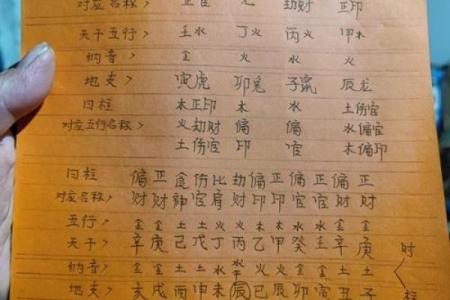 对应名称> 正官 劫财 正印
天干五行> 壬水 丁火 丙火 甲木
纳音> 金 火 水 火
地支> 寅虎 卯兔 子鼠 辰龙
四柱 木正印 木 水 土伤官
对应五行名称> 火劫财 偏 偏 水偏官
土伤官 印 官 木偏印
四柱 偏 正 食 伤 比 劫 偏 正 偏 正 偏 正
对应名称> 财 财 神 官 肩 财 印 印 官 官 财 财
五行> 金 金 土 土 火 火 木 木 水 水 金 金
天干> 辛 庚 己 戊 丁 丙 乙 甲 癸 壬 辛 庚 时
纳音> 金 金 土 土 水 水 火 火 金 金 土 土
地支> 亥 戌 酉 申 未 辰 巳 辰 卯 寅 丑 子